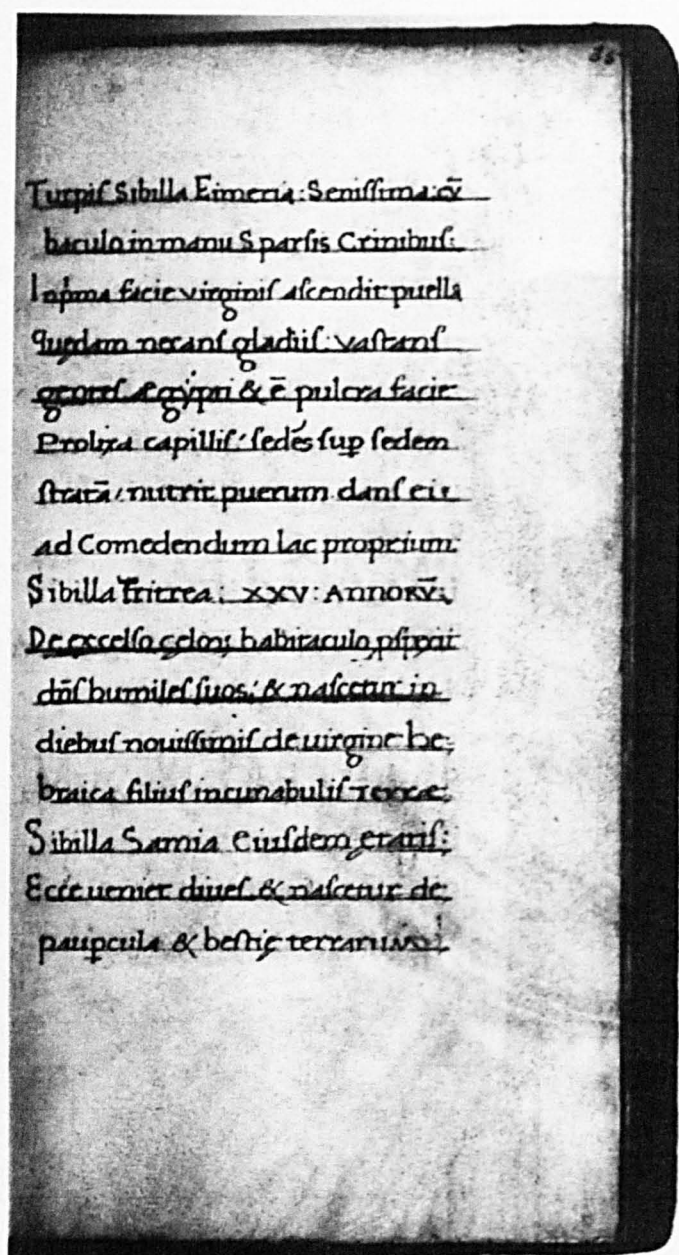 Turpiſ Sibilla Eimeria: Seniſſima: cū
baculo in manu Sparſis Crinibuſ:
In p̍ma facie virginiſ aſcendit puella
quędam necanſ gladiiſ: vaſtanſ
genteſ ægẏpti & ē pulcra facie
Prolixa capilliſ: ſedēſ ſup̱ ſedem
ſtratā: nutrit puerum danſ ei:
ad Comedendum lac proprium:
Sibilla Eritrea: XXV: ANNORV̄:
De excelſo çeloꝝ habitaculo, pſpexit
dn̄ſ humileſ ſuos: & naſcetur in
diebuſ nouiſſimiſ de uirgine he:
braica filiuſ in cunabuliſ terræ:
Sibilla Samia Eiuſdem ętatiſ:
Ecce ueniet diueſ & naſcetur de
paup̱cula & beſtię terrarum